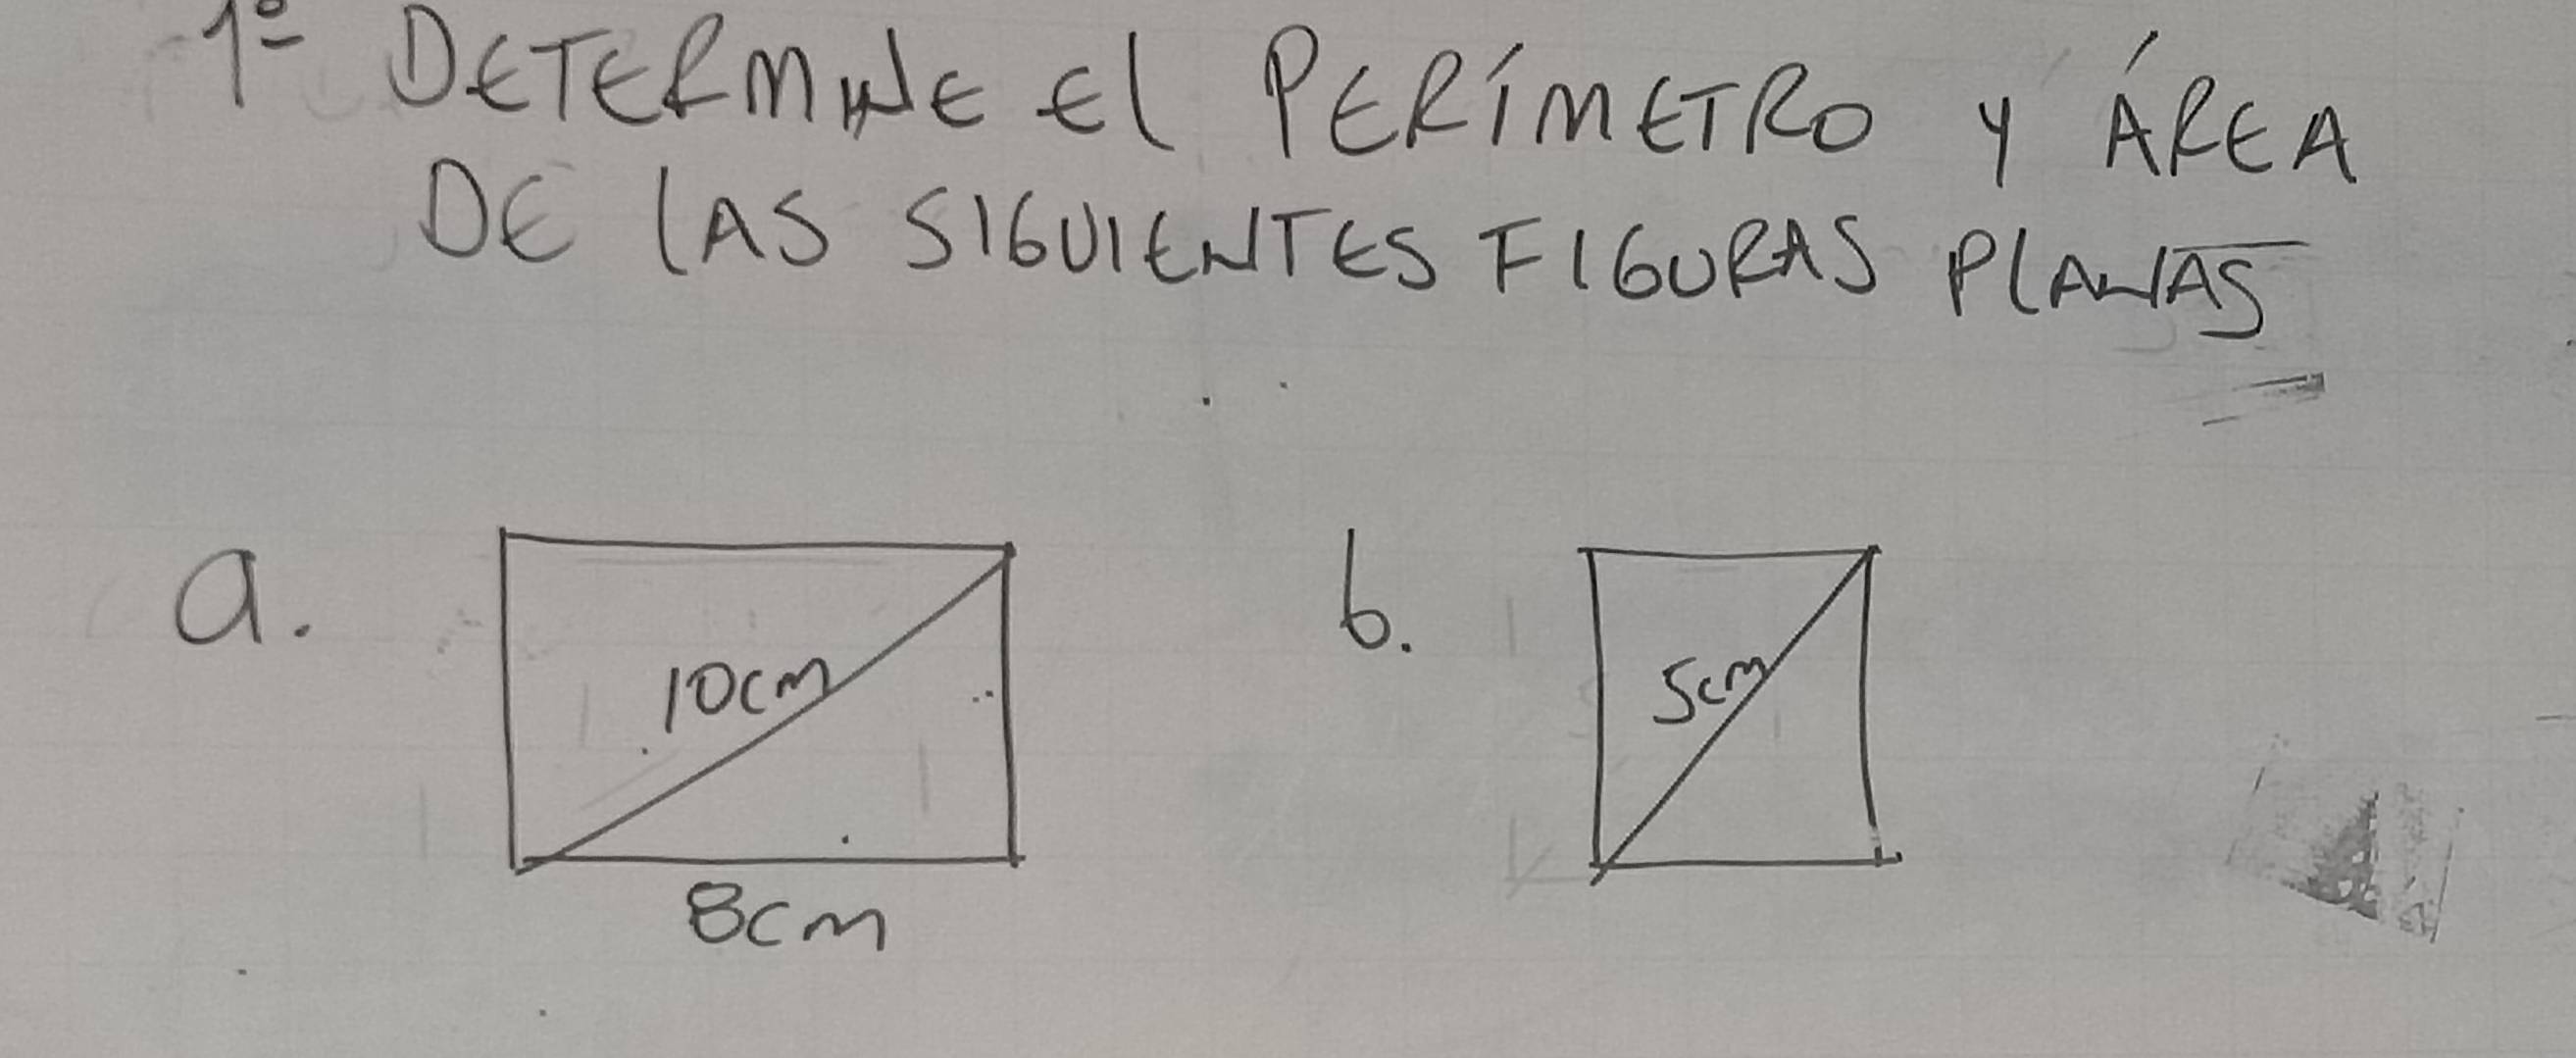 1º DETERMINE El PERÍMETRO Y ÁREA
DE LAS SIGUIENTES FIGURAS PLANAS
a.
10cm
8cm
b.
5cm